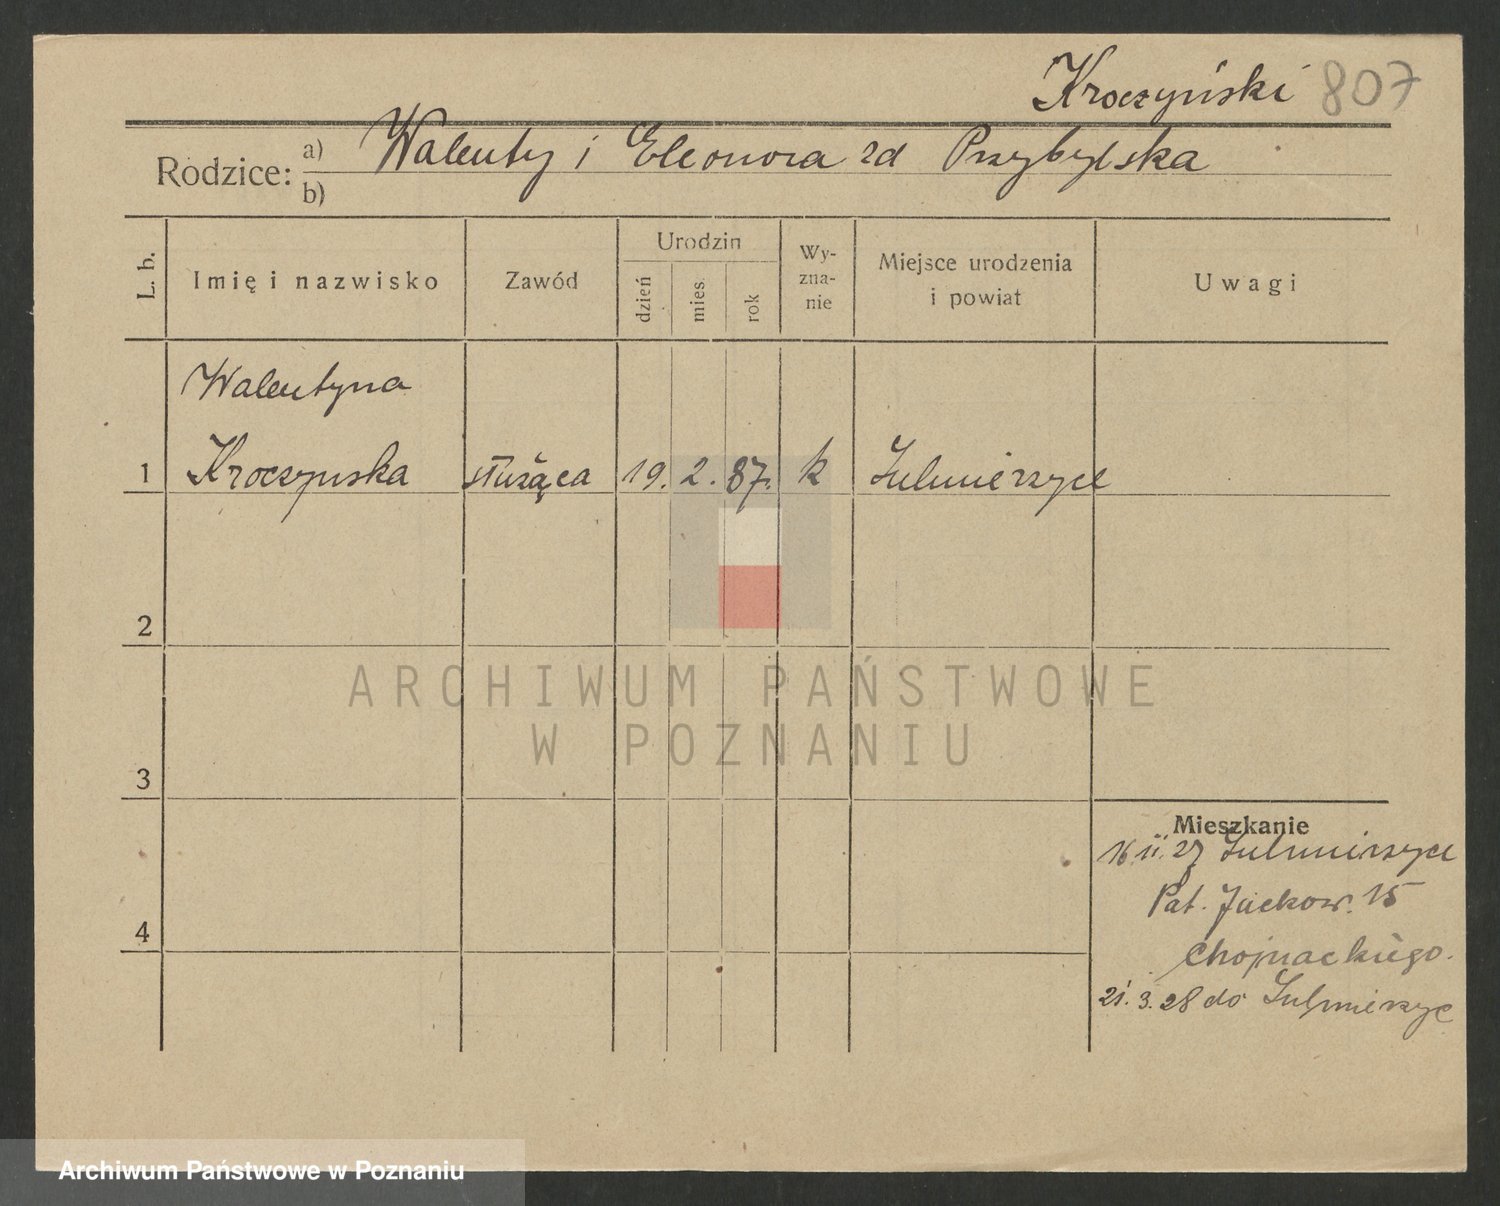 Kroczyński 807
Rodzice: a) Walenty i Eleonora zd Przybylska
b)
L. b.
Imię i nazwisko
Zawód
Urodzin
dzień
mies.
rok
Wy-
zna-
nie
Miejsce urodzenia
i powiat
Uwagi
Walentyna
1 Kroczynska służąca 19. 2. 87. k Sulmierzyce
2
ARCHIWUM PAŃSTWOWE
W POZNANIU
3
Mieszkanie
16.11.27 Sulmierzyce
Pat. Jackow. 15
4
Chojnackiego.
21.3.28 do Sulmierzyc
Archiwum Państwowe w Poznaniu